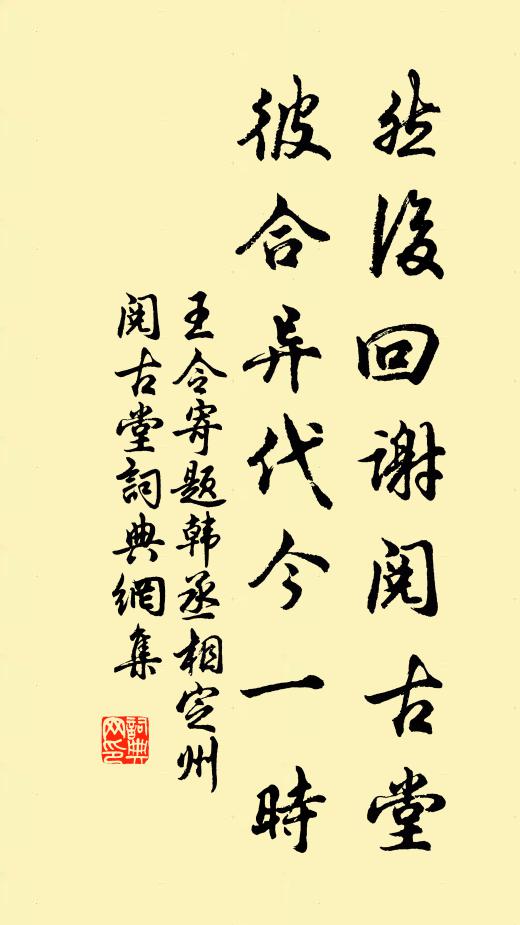 然後回谢閱古堂
彼合异代今一時
王令寄题韩丞相定州
閱古堂詞典網集
詞典網印